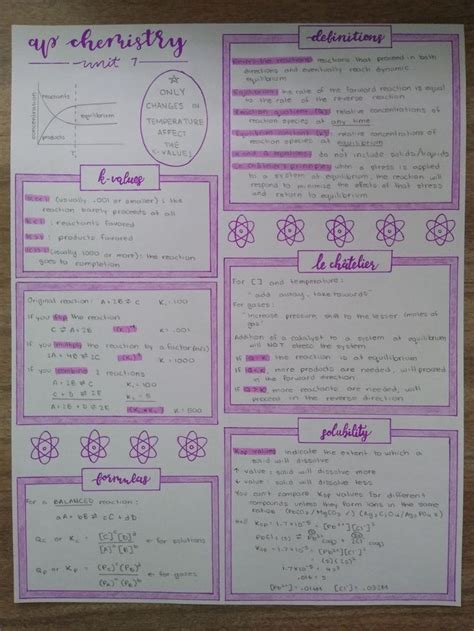 ap chemistry
unit 7
concentration
reactants
products
T
ONLY
CHANGES in
TEMPERATURE
AFFECT
THE
K-VALUES
k-values
(usually .001 or smaller): the
reaction barely proceeds at all
: reactants favored
: products favored
(usually 1000 or more): the reaction
goes to completion
Original reaction: A+2B ⇌ C K₁ = 100
If you flip the reaction
C ⇌ A+2B = .001
If you multiply the reaction by a factor
2A + 4B ⇌ 2C K = 1000
If you combine 2 reactions
A + 2B ⇌ C K₁ = 100
C + D ⇌ K₂ = 5
A + 2B K = 500
formulas
For a BALANCED reaction:
aA + bB ⇌ cC + dD
Qc or Kc = [C]ᶜ[D]ᵈ ← for solutions
[A]ᵃ[B]ᵇ
Qp or Kp = (Pc)ᶜ(PD)ᵈ ← for gases
(PA)ᵃ(PB)ᵇ
definitions
reactions that proceed in both
directions and eventually reach dynamic
equilibrium
Equilibrium: the rate of the forward reaction is equal
to the rate of the reverse reaction
Reaction quotient (Q): relative concentrations of
reaction species at any time
Equilibrium constant (K): relative concentrations of
reaction species at equilibrium
K and Q equations: do not include solids/liquids
Le Chatelier's principle: when a stress is applied
to a system at equilibrium, the reaction will
respond to minimize the effects of that stress
and return to equilibrium
le châtelier
For [ ] and temperature:
"add away, take towards"
For gases:
"increase pressure, shift to the lesser (moles of
gas"
Addition of a catalyst to a system at equilibrium
will NOT stress the system
If Q=K the reaction is at equilibrium
If Q<K more products are needed, will proceed
in the forward direction
If Q>K more reactants are needed, will
proceed in the reverse direction
solubility
Ksp values: indicate the extent to which a
solid will dissolve
↑ value: solid will dissolve more
↓ value: solid will dissolve less
You can't compare Ksp values for different
compounds unless they form ions in the same
ratio
Ksp = 1.7×10⁻⁵ = [Pb²⁺][Cl⁻]²
PbCl₂(s) ⇌ Pb²⁺ + 2Cl⁻
1.7×10⁻⁵ = 4s³
.016 = s
[Pb²⁺] = .016M [Cl⁻] = .032M